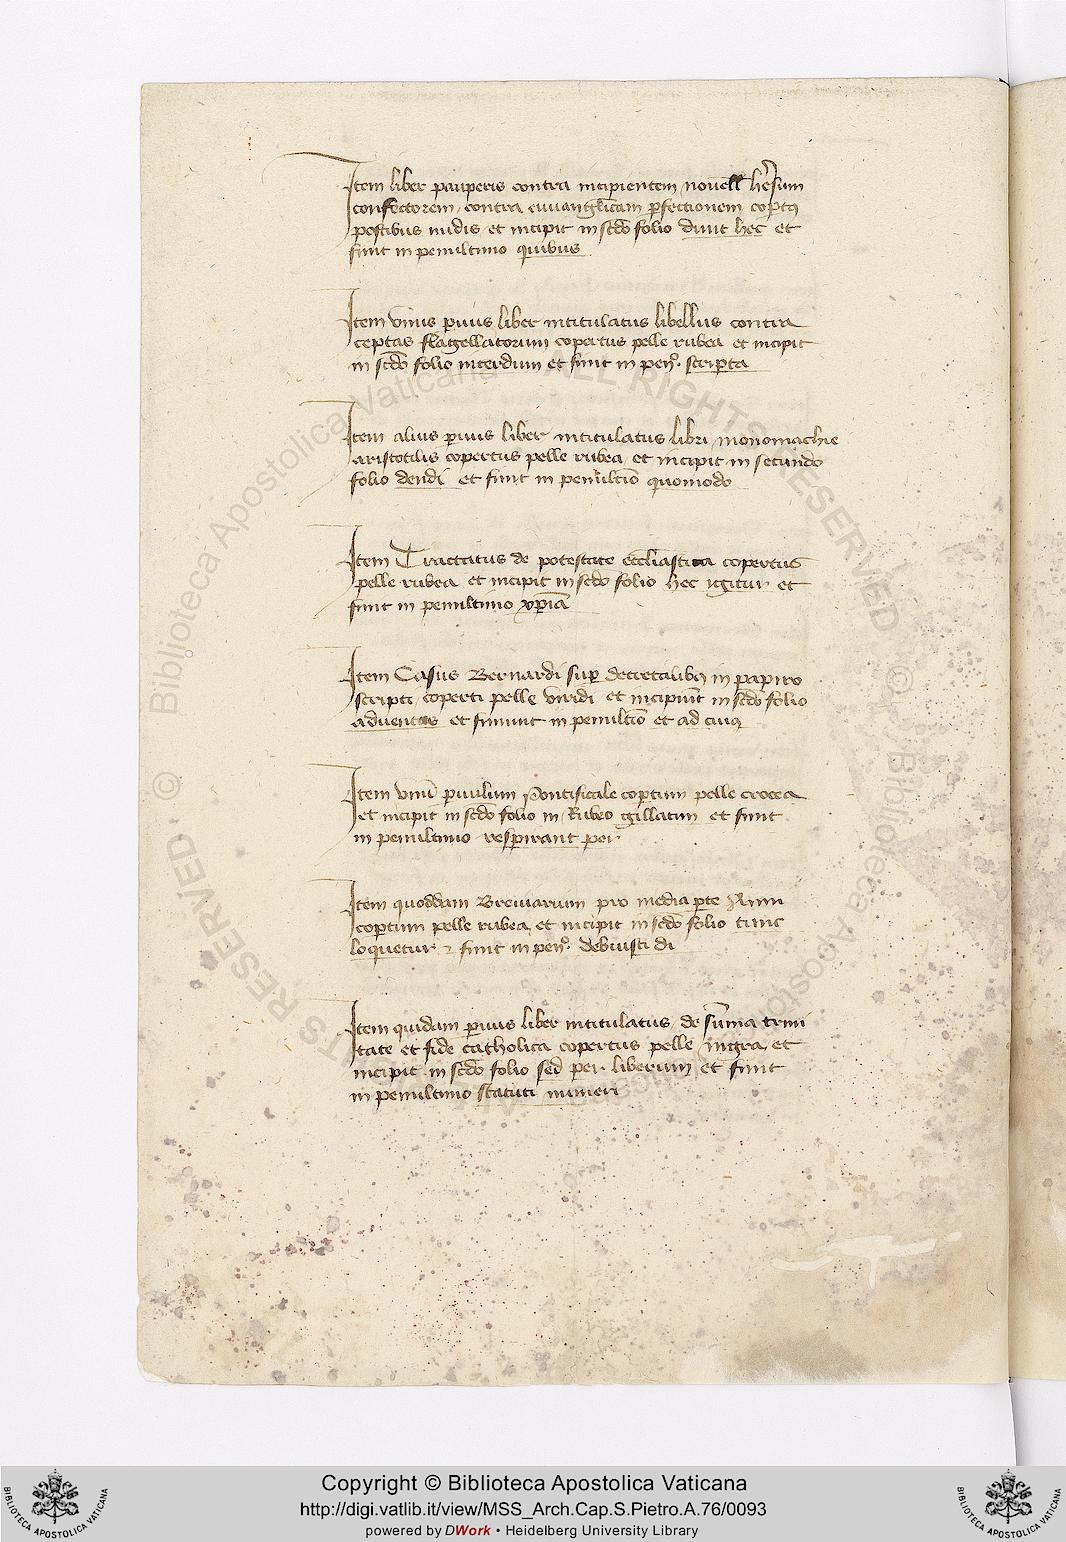 Item liber pauperis contra incipientem nouell hēsum
confectorem contra euuanglicam pfectionem coptꝰ
postibus nudis et incipit in scdo folio dicunt hec et
finit in penultimo quibus
Item vnus puus liber intitulatus libellus contra
ceptas flagellatorum copertus pelle rubea et incipit
in scdo folio interdum et finit in pen̊. scripta
Item alius puus liber intitulatus libri monomachie
aristotilis copertus pelle rubea et incipit in secundo
folio dendi et finit in penultīo quomodo
Item Tractatus de potestate ecclīastica copertus
pelle rubea et incipit in scdo folio hec igitur et
finit in penultimo xp̄iā
Item Casus Bernardi sup decretalibꝫ in papiro
scripti coperti pelle viridi et incipiūt in scdo folio
aduentas et finiunt in penultīo et ad cuiꝰ
Item vnū puulum Pontificale coptum pelle crocea
et incipit in scdo folio in Rubeo gillatim et finit
in penultimo respirant per
Item quoddam Breuiarium pro media pte Anni
coptum pelle rubea et incipit in scdo folio tunc
loquetur ⁊ finit in pen̊. debuisti di
Item quidam puus liber intitulatus de sūma trini
tate et fide catholica copertus pelle nigra et
incipit in scdo folio sed per liberum et finit
in penultimo statuti numeri
Copyright © Biblioteca Apostolica Vaticana
http://digi.vatlib.it/view/MSS_Arch.Cap.S.Pietro.A.76/0093
powered by DWork • Heidelberg University Library